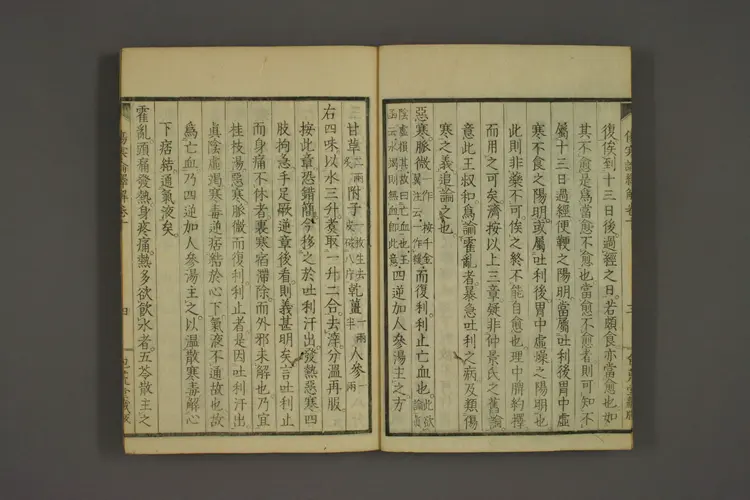 復俟到十三日後過經之日若頗食亦當愈也如
其不愈是爲當愈不愈也當愈不愈者則可知不
屬十三日過經便鞕之陽明當屬吐利後胃中虛
寒不食之陽明或屬吐利後胃中虛燥之陽明也
此則非藥不可俟之終不能自愈也理中脾約擇
而用之可矣濟按以上三章疑非仲景氏之舊論
意此王叔和爲論霍亂者暴急吐利之病及類傷
寒之義追論之也
惡寒脈微而復利利止亡血也四逆加人參湯主之方
甘草附子乾薑人參
右四味以水三升煑取一升二合去滓分溫再服
按此章恐錯簡今移之於吐利汗出發熱惡寒四
肢拘急手足厥逆章後看則義甚明矣言吐利止
而身痛不休者裏寒宿滯除而外邪未解也乃宜
桂枝湯惡寒脈微而復利利止者是因吐利汗出
眞陰虛渴寒毒逆痞結於心下氣液不通故也故
爲亡血乃四逆加人參湯主之以溫散寒毒解心
下痞結通氣液矣
霍亂頭痛發熱身疼痛熱多欲飲水者五苓散主之